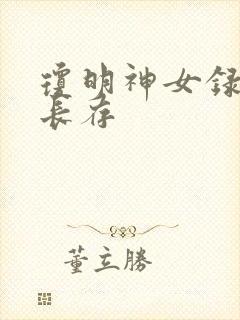 瓊明神女録
長存
董立勝